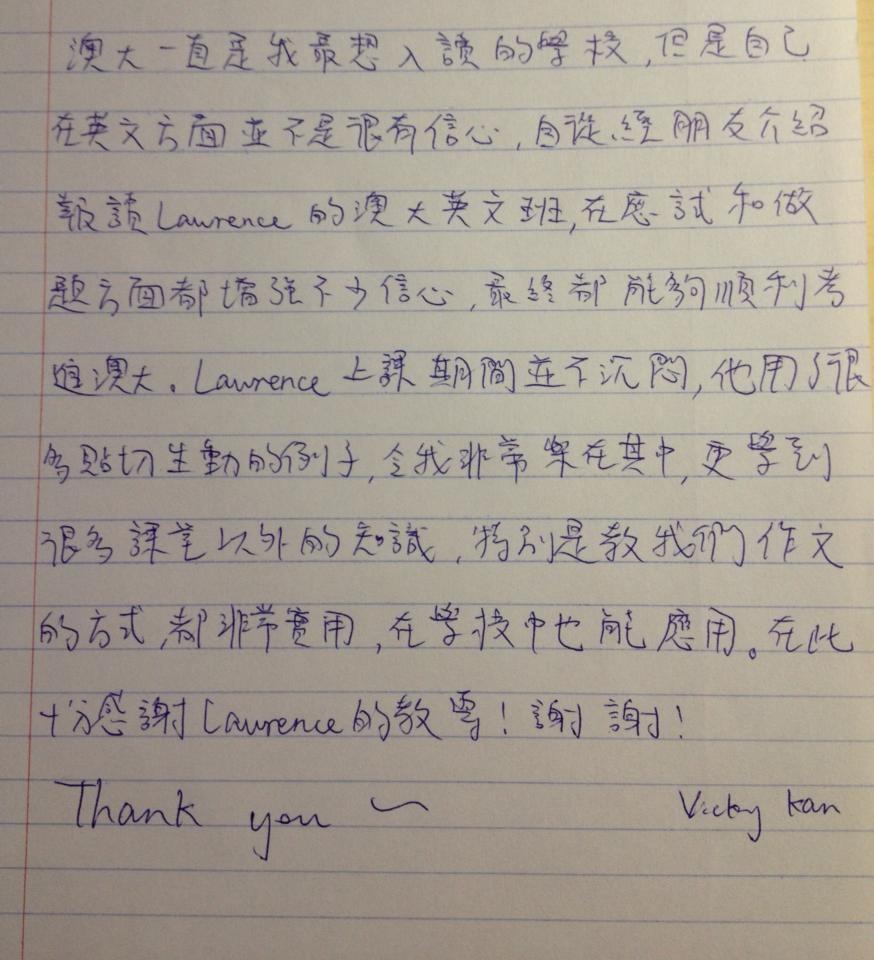 澳大一直是我最想入讀的學校,但是自己
在英文方面並不是很有信心,自從經朋友介紹
報讀Lawrence的澳大英文班,在應試和做
題方面都增強不少信心,最終都能夠順利考
進澳大。Lawrence上課期間並不沉悶,他用了很
多貼切生動的例子,令我非常樂在其中,更學到
很多課堂以外的知識,特別是教我們作文
的方式,都非常實用,在學校中也能應用。在此
十分感謝Lawrence的教導!謝謝!
Thank you ~
Vicky Kan